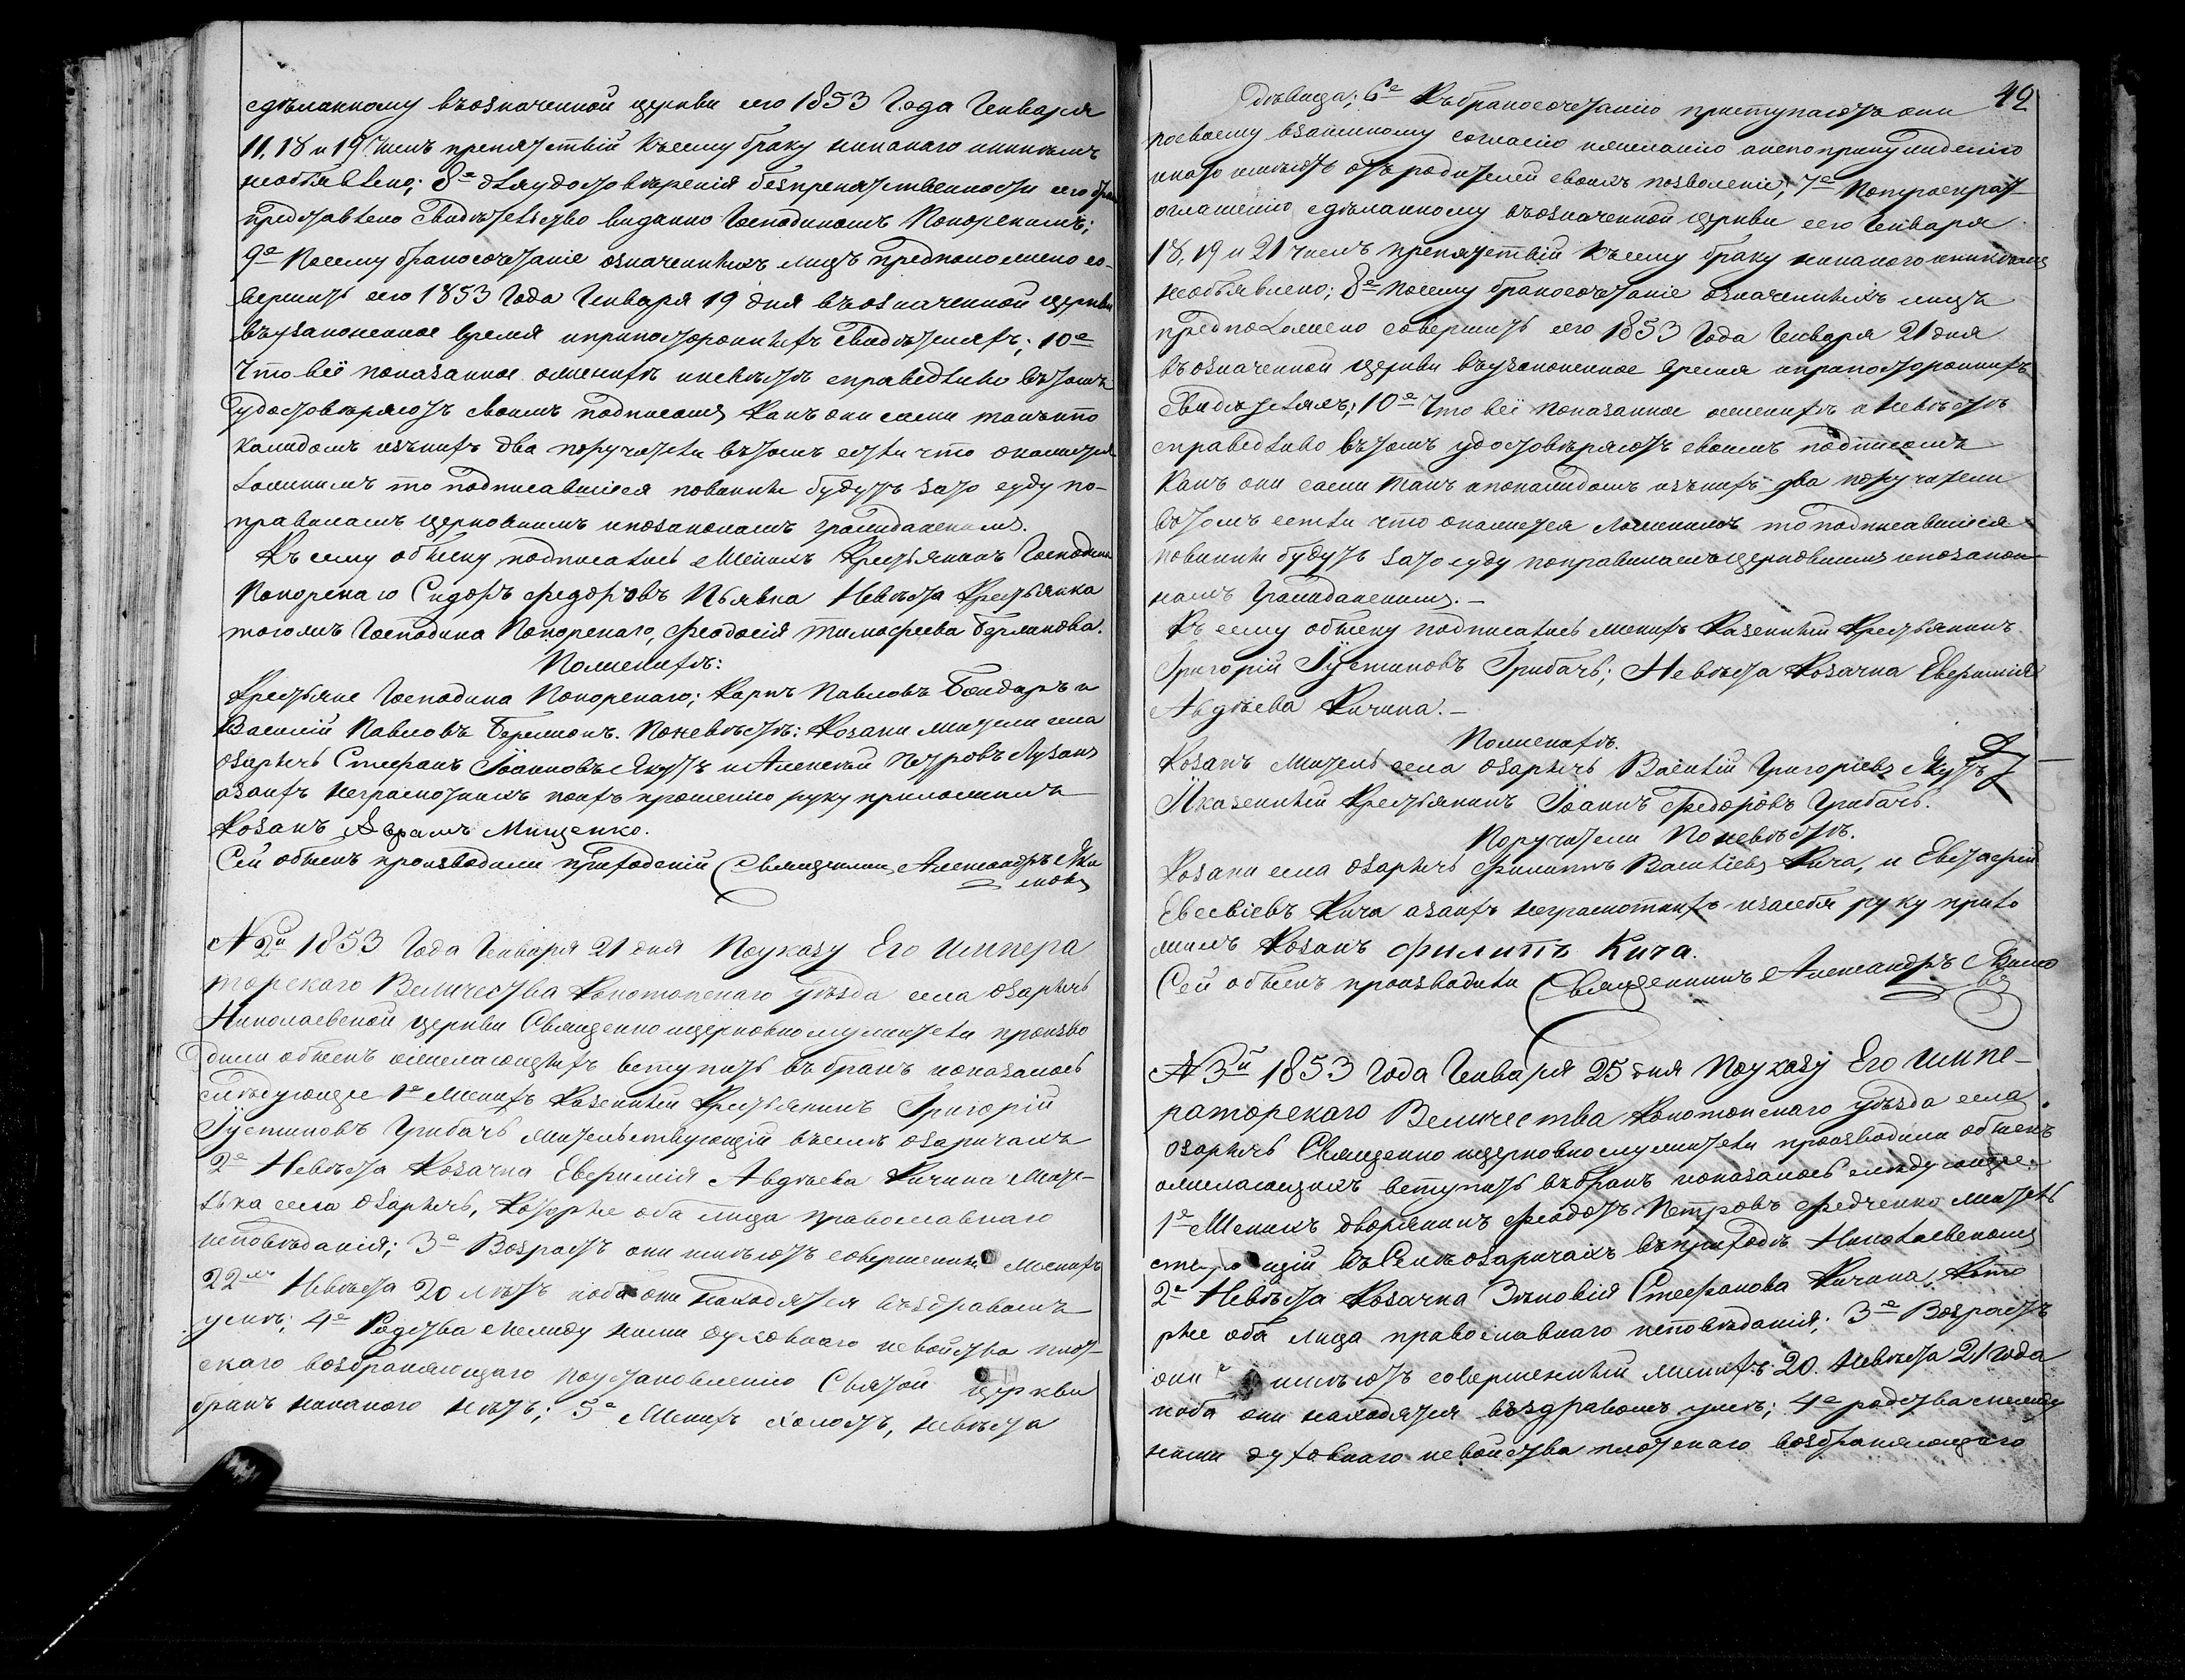 сдѣланному въозначенной церкви сего 1853 Года Генваря
11, 18 и 19 чиселъ препятствій къ сему браку никакаго иникѣмъ
необъявлено; 8е для удостовѣренія безпрепятственности сего брака
представлено Свидѣтельство виданно Господиномъ Покорскимъ;
9е Посему бракосочетаніе означенныхъ лицъ предположено со-
вершить сего 1853 Года Генваря 19 дня въозначенной церкви
въузаконенное время ипри постороннихъ Свидѣтеляхъ; 10е
Что всё показанное оженихѣ иневѣстѣ справедливо вътомъ
Удостовѣряютъ своимъ подписомъ какъ они сами такъ ипо
каждомъ изънихъ два поручителя вътомъ если что окажется
ложнимъ то подписавшіеся повинни будутъ зато суду по-
правиламъ церковнимъ ипозаконамъ гражданскимъ.
Къ сему обыску подписались Женихъ Крестьянинъ Господина
Покорскаго Сидоръ Федоровъ Пьявка Невѣста Крестьянка
тогожъ Господина Покорскаго, Феодосія Тимофеева
Поженихѣ:
Крестьяне Господина Покорскаго; Карпъ Павловъ Бондаръ и
Василій Павловъ Поневѣстѣ: Козаки жители села
Озаричъ Стефанъ Іоанновъ Якутъ и Алексѣй Петровъ Лузанъ
азаихъ неграмотныхъ поихъ прошенію руку приложилъ
Козакъ Аврамъ Мищенко.
Сей обыскъ производили приходскій Священникъ Александръ Яки
мовъ
№ 2й 1853 Года Генваря 21 дня Поуказу Его Импера
торскаго Величества Конотопскаго уѣзда села Озаричъ
Николаевской церкви Священно ицерковнослужители произво
дили обыскъ ожелающихъ вступить въ бракъ ипоказалось
слѣдующее 1е Женихъ Казенный Крестьянинъ Григорій
Іустиновъ Грибачъ жительствующій въселѣ Озаричахъ
2е Невѣста Козачка Евфимія Авдѣева Кичина жите-
лька села Озаричъ, Которые оба лица православнаго
исповѣданія; 3е Возрастъ они имѣютъ совершенный Женихъ
22хъ Невѣста 20 лѣтъ иоба они находятся въздравомъ
умѣ; 4е Родства между ними духовнаго исвойства плот-
скаго возбраняющаго поустановленію Святой церкви
бракъ никакого нѣтъ; 5е Женихъ холостъ, невѣста
42
дѣвица; 6е Къбракосочетанію приступаютъ они
посвоему взаимному согласію ижеланію анепопринужденію
инато имѣютъ отъ родителей своихъ позволеніе; 7е Потроекрат
оглашенію сдѣланному въозначенной церкви сего Генваря
18, 19 и 21 чиселъ препятствій къ сему браку никакого иникѣмъ
необъявлено; 8е посему бракосочетаніе означенныхъ лицъ
предположено совершить сего 1853 Года Генваря 21 дня
въозначенной церкви въузаконенное время ипри постороннихъ
Свидѣтеляхъ; 10е Что всё показанное оженихѣ иневѣстѣ
справедливо вътомъ удостовѣряютъ своимъ подписомъ
какъ они сами такъ ипокаждомъ изънихъ два поручители
вътомъ если что окажется ложнимъ то подписавшіеся
повинни будутъ зато суду поправиламъ церковнимъ ипозакон-
намъ Гражданскимъ.-
Къ сему обыску подписались женихъ Казенный Крестьянинъ
Григорій Іустиновъ Грибачъ; Невѣста Козачка Евфимія
Авдѣева Кичина.-
Поженихѣ.
Козакъ житель села Озаричъ Василій Григоріевъ Якутъ
Іказенный Крестьянинъ Іоаннъ Федоровъ Грибачъ.
Поручители Поневѣстѣ.
Козаки села Озаричъ Филиппъ Василіевъ Кича, и Евстафій
Евсевіевъ Кича азаихъ неграмотныхъ изасебя руку прило
жилъ Козакъ Филиппъ Кича.
Сей обыскъ производили Священникъ Александръ Якимо
въ
№ 3й 1853 Года Генваря 25 дня Поуказу Его Импе-
раторскаго Величества Конотопскаго уѣзда села
Озаричъ Священно ицерковнослужители производили обыскъ
ожелающихъ вступить въбракъ ипоказалось слѣдующее:
1е Женихъ дворянинъ Феодотъ Петровъ Федченко житель
ствующій въ Селѣ Озаричахъ въприходѣ Николаевскомъ
2е Невѣста Козачка Зиновія Стефанова Кичина, Кото
рые оба лица православнаго исповѣданія; 3е Возрастъ
они имѣютъ совершенный женихъ 20. Невѣста 21 года
иоба они находятся въздравомъ умѣ; 4е родства между
ними духовнаго исвойства плотскаго возбраняющаго